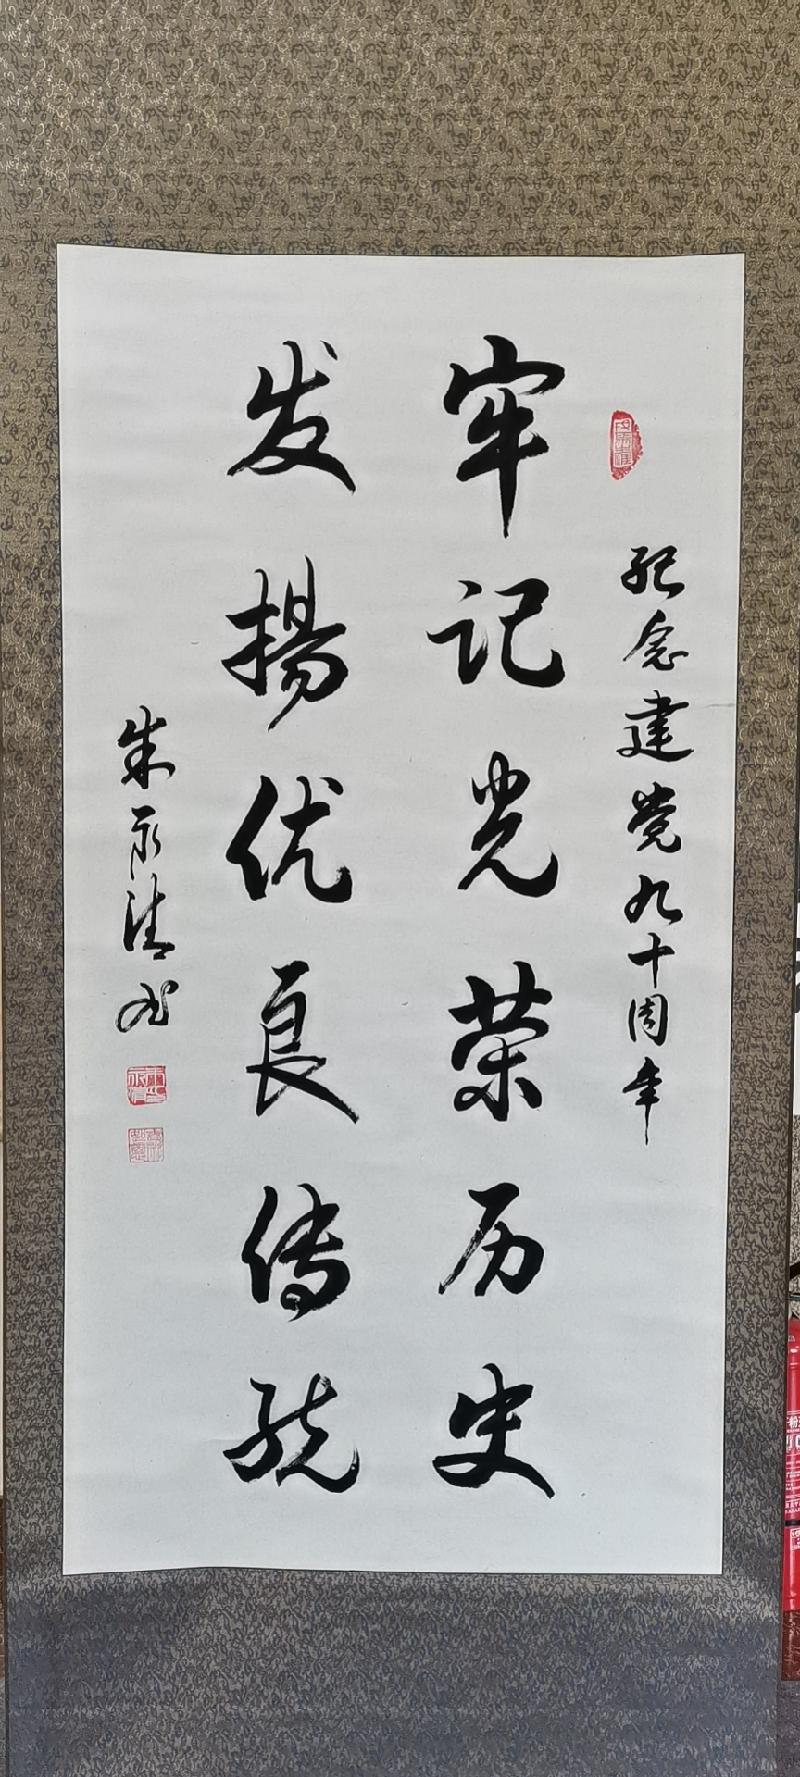 纪念建党九十周年
牢记光荣历史
发揚优良传统
朱永清书